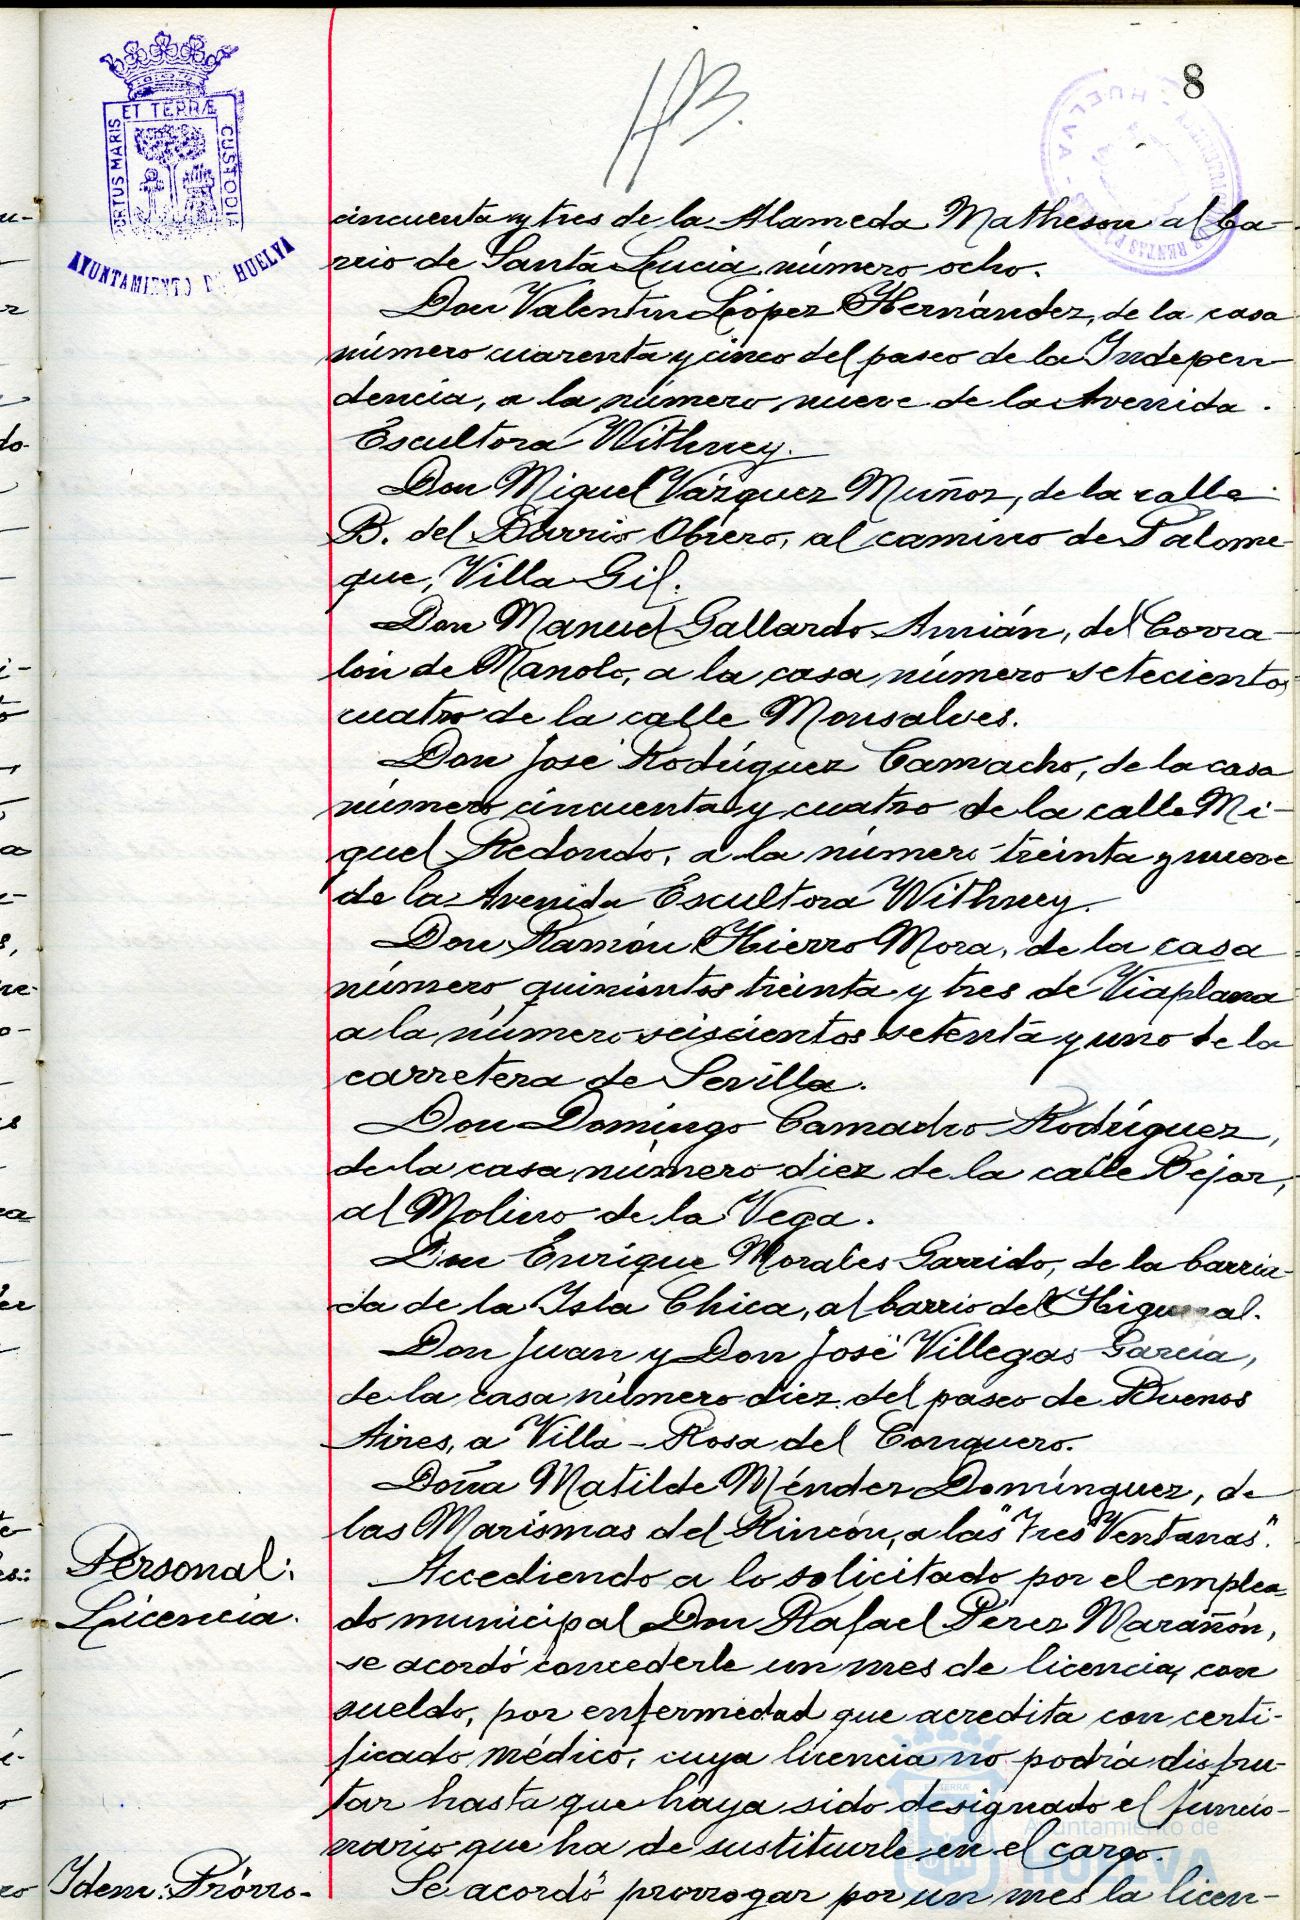 8
PORTUS MARIS ET TERRÆ CUSTODIA
AYUNTAMIENTO DE HUELVA
cincuenta y tres de la Alameda Matheson al ba-
rrio de Santa Lucia, número ocho.
Don Valentin López Hernández, de la casa
número cuarenta y cinco del paseo de la Indepen-
dencia, a la número nueve de la Avenida
Escultora Withney.
Don Miguel Vázquez Muñoz, de la calle
B. del Barrio Obrero, al camino de Palome-
que, Villa Gil.
Don Manuel Gallardo Amián, del Corra-
lón de Manolo, a la casa número setecientos
cuatro de la calle Monsalves.
Don José Rodríguez Camacho, de la casa
número cincuenta y cuatro de la calle Mi-
guel Redondo, a la número treinta y nueve
de la Avenida Escultora Withney.
Don Ramón Hierro Mora, de la casa
número quinientos treinta y tres de Viaplana
a la número seiscientos setenta y uno de la
carretera de Sevilla.
Don Domingo Camacho Rodríguez,
de la casa número diez de la calle Bejar,
al Molino de la Vega.
Don Enrique Morales Garrido, de la barria-
da de la Isla Chica, al barrio del Higueral.
Don Juan y Don José Villegas García,
de la casa número diez del paseo de Buenos
Aires, a Villa-Rosa del Conquero.
Doña Matilde Méndez Domínguez, de
las Marismas del Rincón, a las "Tres Ventanas".
Personal:
Licencia.
Accediendo a lo solicitado por el emplea-
do municipal Don Rafael Pérez Marañón,
se acordó concederle un mes de licencia, con
sueldo, por enfermedad que acredita con certi-
ficado médico, cuya licencia no podrá disfru-
tar hasta que haya sido designado el funcio-
nario que ha de sustituirle en el cargo.
Idem: Prórro-
Se acordó prorrogar por un mes la licen-
Ayuntamiento de
HUELVA